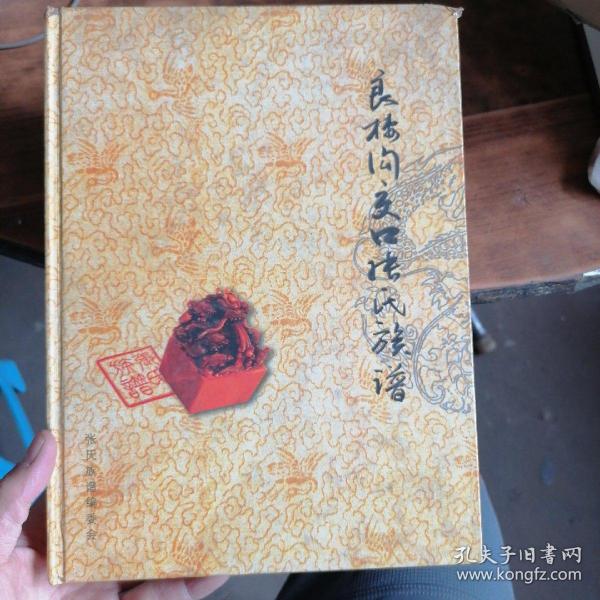 良楼沟交口张氏族谱
张氏族谱编委会
孔夫子旧书网
www.kongfz.com